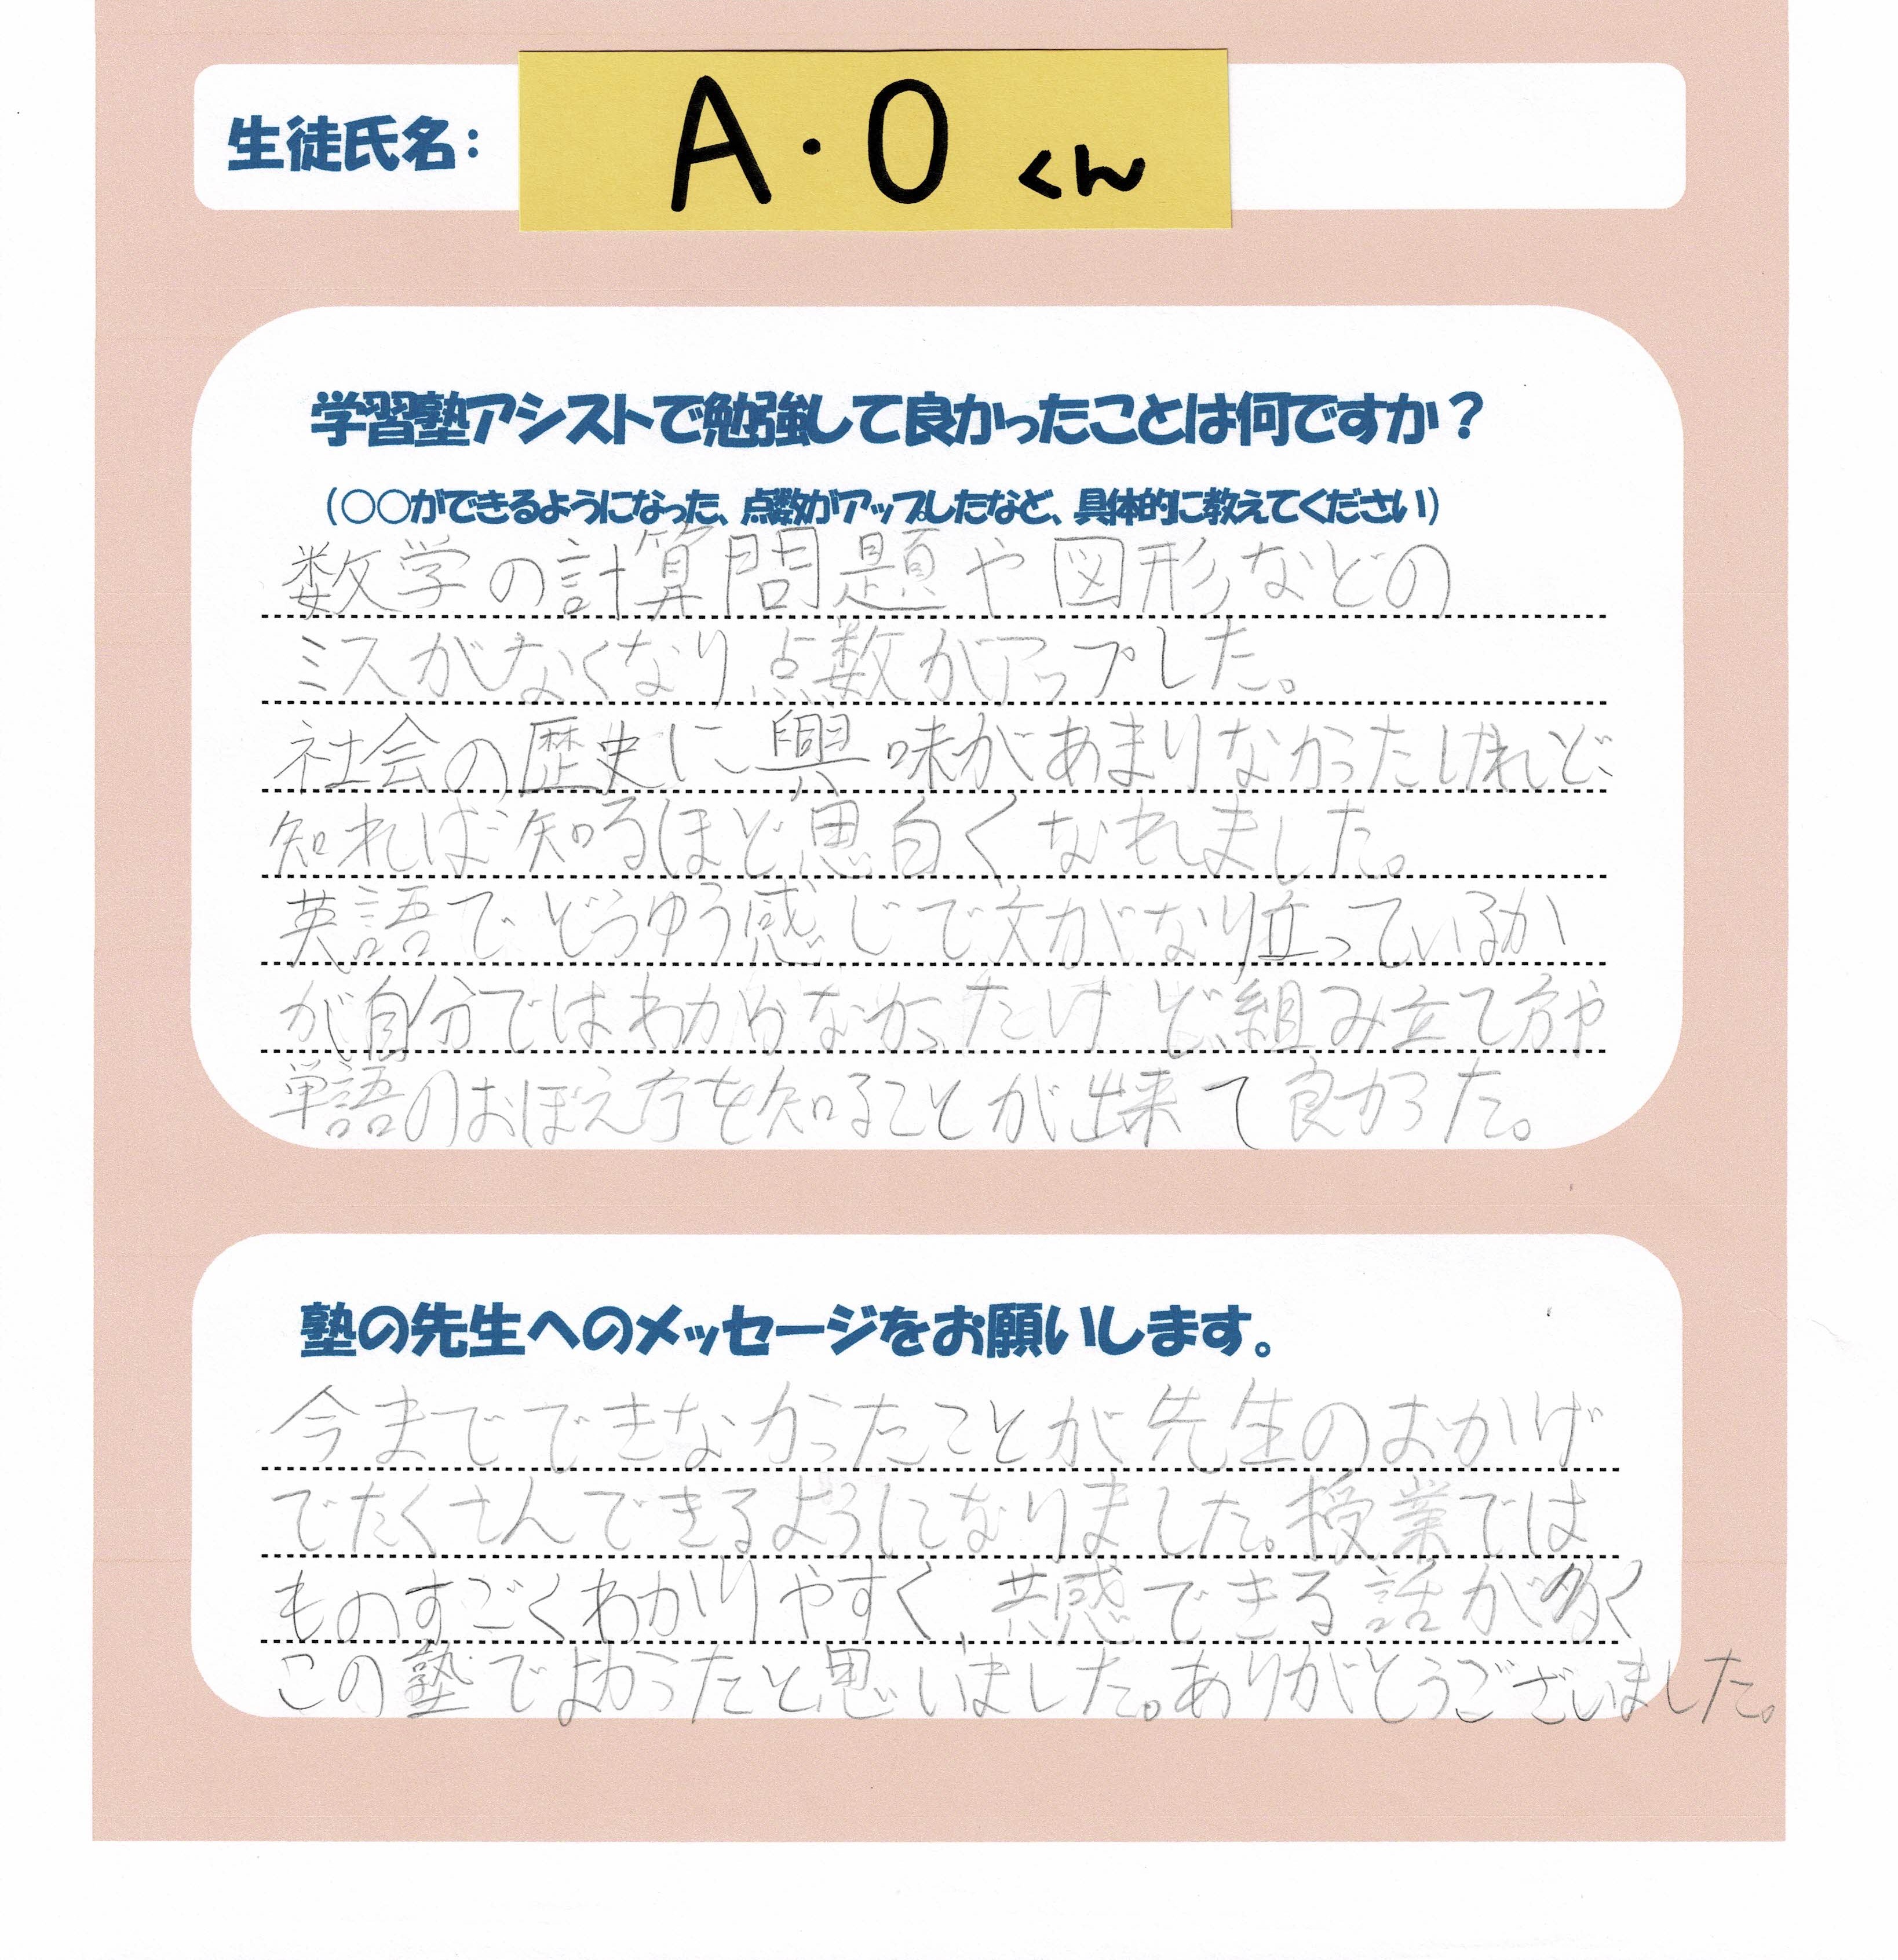 生徒氏名:
A・O くん
学習塾アシストで勉強して良かったことは何ですか？
（○○ができるようになった、点数がアップしたなど、具体的に教えてください）
数学の計算問題や図形などの
ミスがなくなり点数がアップした。
社会の歴史に興味があまりなかったけれど、
知れば知るほど思白くなれました。
英語でどうゆう感じで文がなり立っているか
が自分ではわからなかったけど、組み立て方や
単語のおぼえ方を知ることが出来て良かった。
塾の先生へのメッセージをお願いします。
今までできなかったことが先生のおかげ
でたくさんできるようになりました。授業では
ものすごくわかりやすく、共感できる話が多く
この塾でよかったと思いました。ありがとうございました。